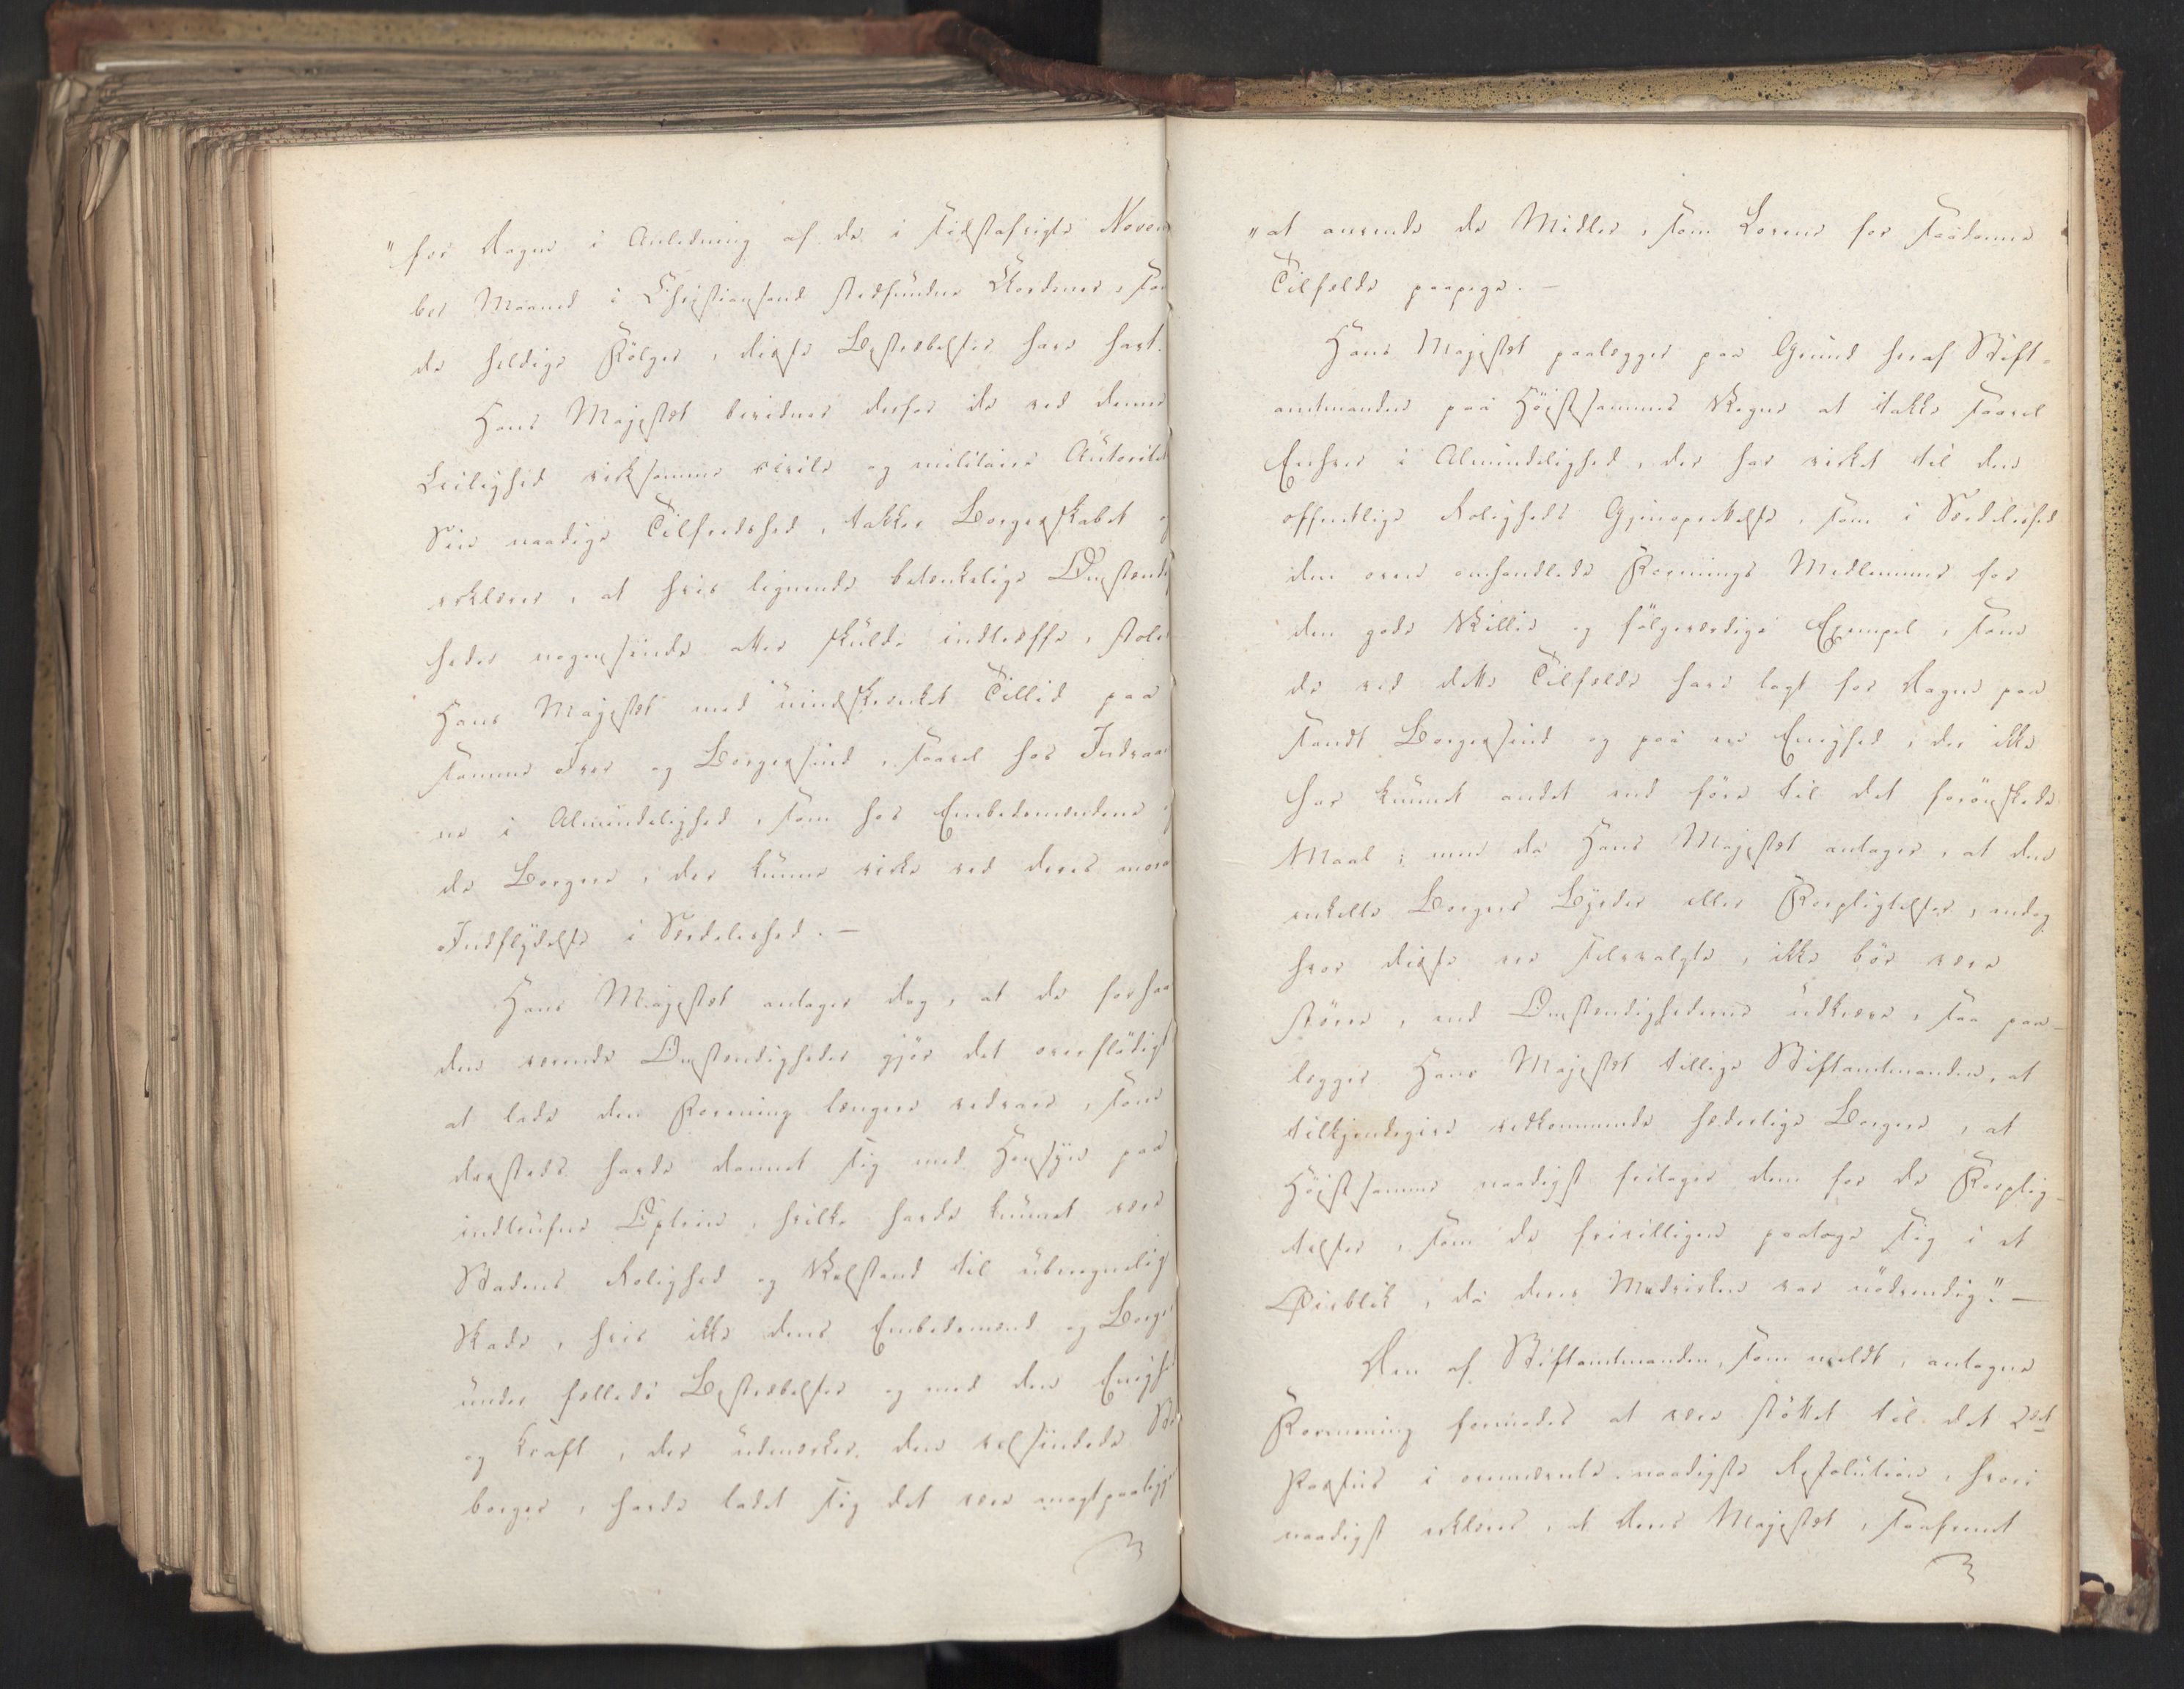 "for Dagen i Anledning af de i sidstafvigte Novem
ber Maaned i Christiansand stedfundne Uordener, saa
de heldige Følger, disse Bestræbelser have havt.
Hans Majestæt bevidner derfor de ved denne
Leilighed virksomme civile og militaire Autoritet
Sin naadige Tilfredshed, takker Borgerskabet o
erklærer, at hvis lignende betænkelige Omstændig
heder nogensinde atter skulde indtræffe, stoler
Hans Majestæt med uindskrænket Tillid paa
samme Iver og Borgersind, saavel hos Indvaa
ne i Almindelighed, som hos Embedsmændene o
de Borgere, der kunne virke ved deres mora
Indflydelse i Særdeleshed. —
Hans Majestæt antager dog, at de forhaa
den værende Omstændigheder gjør det overflødigt
at lade den Forening længere vedvare, som
dersteds havde dannet sig med Hensyn paa
indtrufne Optrin, hvilke havde kunnet være
Stadens Rolighed og Velstand til uberegnelig
Skade, hvis ikke dens Embedsmænd og Borge
under fælleds Bestræbelser og med den Enighe
og Kraft, der udmærker den velsindede St
borger, havde ladet sig det være magtpaaligg
"at anvende de Midler, som Loven for saadanne
Tilfælde paapege. —
Hans Majestæt paalægger paa Grund heraf Stift-
amtmanden paa Høistsammes Vegne at takke saavel
Enhver i Almindelighed, der har virket til den
offentlige Roligheds Gjenoprettelse, som i Særdeleshed
den oven omhandlede Forenings Medlemmer for
den gode Villie og følgeværdige Exempel, som
de ved dette Tilfælde have lagt for Dagen paa
sandt Borgersind og paa en Enighed, der ikke
har kunnet andet end føre til det forønskede
Maal; men da Hans Majestæt antager, at den
enkelte Borgers Byrder eller Forpligtelser, endog
hvor disse ere selvvalgte, ikke bør være
større, end Omstændighederne udkræve, saa paa-
lægger Hans Majestæt tillige Stiftamtmanden, at
tilkjendegive vedkommende hæderlige Borgere, at
Høistsamme naadigst fritager dem for de Forplig-
telser, som de frivilligen paatoge sig i et
Øieblik, da deres Medvirken var nødvendig". —
Den af Stiftamtmanden, som meldt, antagne
Formening formodes at være støttet til det 2det
Passus i ovennævnte naadigste Resolution, hvori
naadigst erklæres, at Deres Majestæt, saafremt